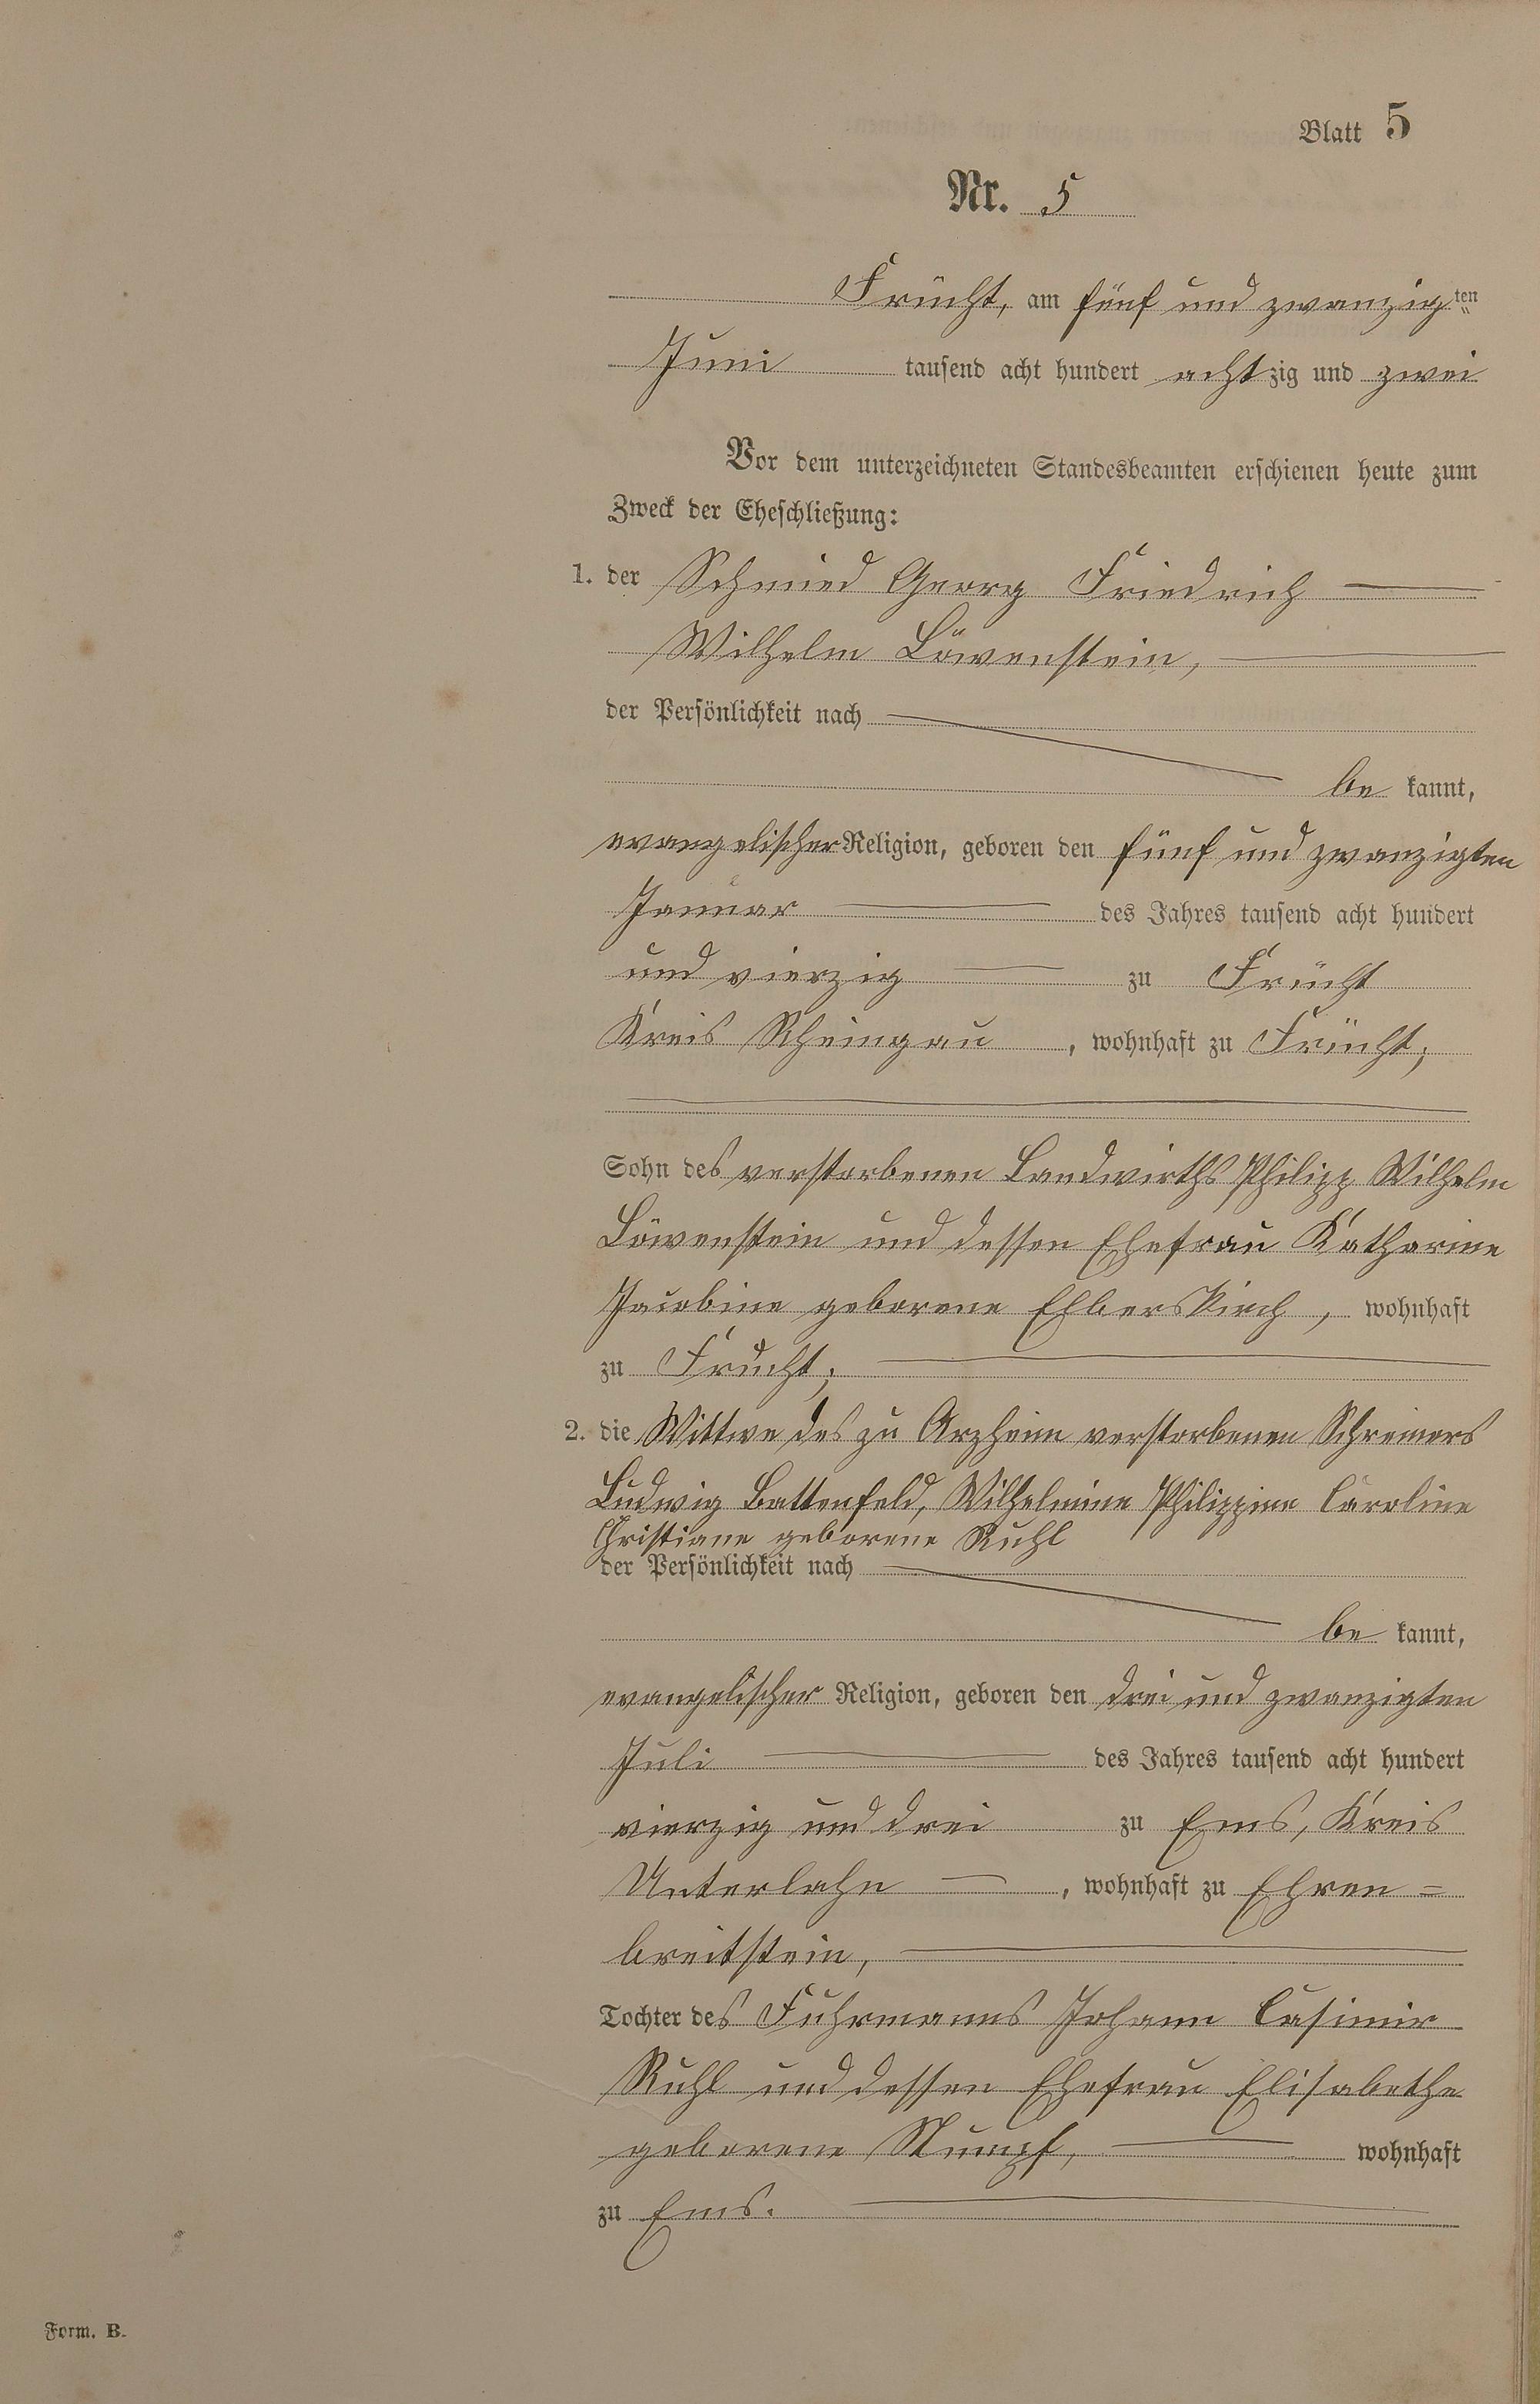 Blatt 5
Nr. 5
Frücht, am fünf und zwanzig ten
Juni tausend acht hundert achtzig und zwei
Vor dem unterzeichneten Standesbeamten erschienen heute zum
Zweck der Eheschließung:
1. der Schmied Georg Friedrich
Wilhelm Löwenstein,
der Persönlichkeit nach
be kannt,
evangelischer Religion, geboren den fünf und zwanzigten
Januar des Jahres tausend acht hundert
und vierzig zu Frücht
Kreis Rheingau, wohnhaft zu Frücht;
Sohn des verstorbenen Landwirths Philipp Wilhelm
Löwenstein und dessen Ehefrau Katharine
Jacobine geborene Elberskirch, wohnhaft
zu Frücht;
2. die Wittwe des zu Arzheim verstorbenen Schreiners
Ludwig Battenfeld, Wilhelmine Philippine Caroline
Christiane geborene Ruhl
der Persönlichkeit nach
be kannt,
evangelischer Religion, geboren den drei und zwanzigten
Juli des Jahres tausend acht hundert
vierzig und drei zu Ems, Kreis
Unterlahn, wohnhaft zu Ehren=
breitstein,
Tochter des Fuhrmanns Johann Casimir
Ruhl und dessen Ehefrau Elisabethe
geborene Stumpf, wohnhaft
zu Ems.
Form. B.